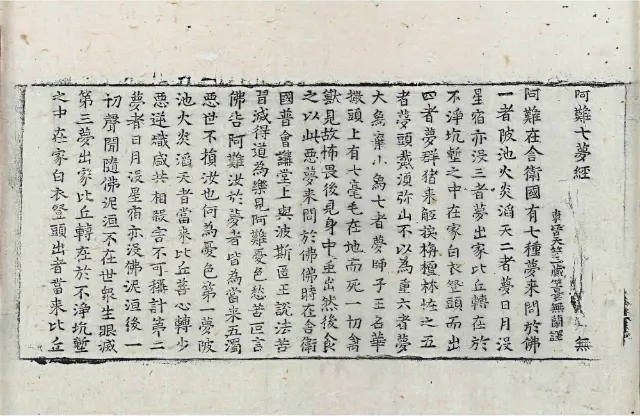 阿難七夢經 無
東晉天竺三藏竺曇無蘭譯
阿難在舍衛國有七種夢来問於佛
一者陂池火炎滔天二者夢日月没
星宿亦没三者夢出家比丘轉在於
不淨坑塹之中在家白衣登頭而出
四者夢群猪来觝揬栴檀林恠之五
者夢頭戴湏弥山不以為重六者夢
大象棄小象七者夢師子王名華
撒頭上有七毫毛在地而死一切禽
獸見故怖畏後見身中虫出然後食
之以此惡夢来問於佛佛時在舍衛
國普會講堂上與波斯匿王說法苦
習滅得道為樂見阿難憂色愁苦叵言
佛告阿難汝於夢者皆為當来五濁
惡世不損汝也何為憂色第一夢陂
池火炎滔天者當来比丘善心轉少
惡逆熾盛共相殺害不可稱計第二
夢者日月没星宿亦没佛泥洹後一
切聲聞隨佛泥洹不在世衆生眼滅
第三夢出家比丘轉在於不淨坑塹
之中在家白衣登頭出者當来比丘